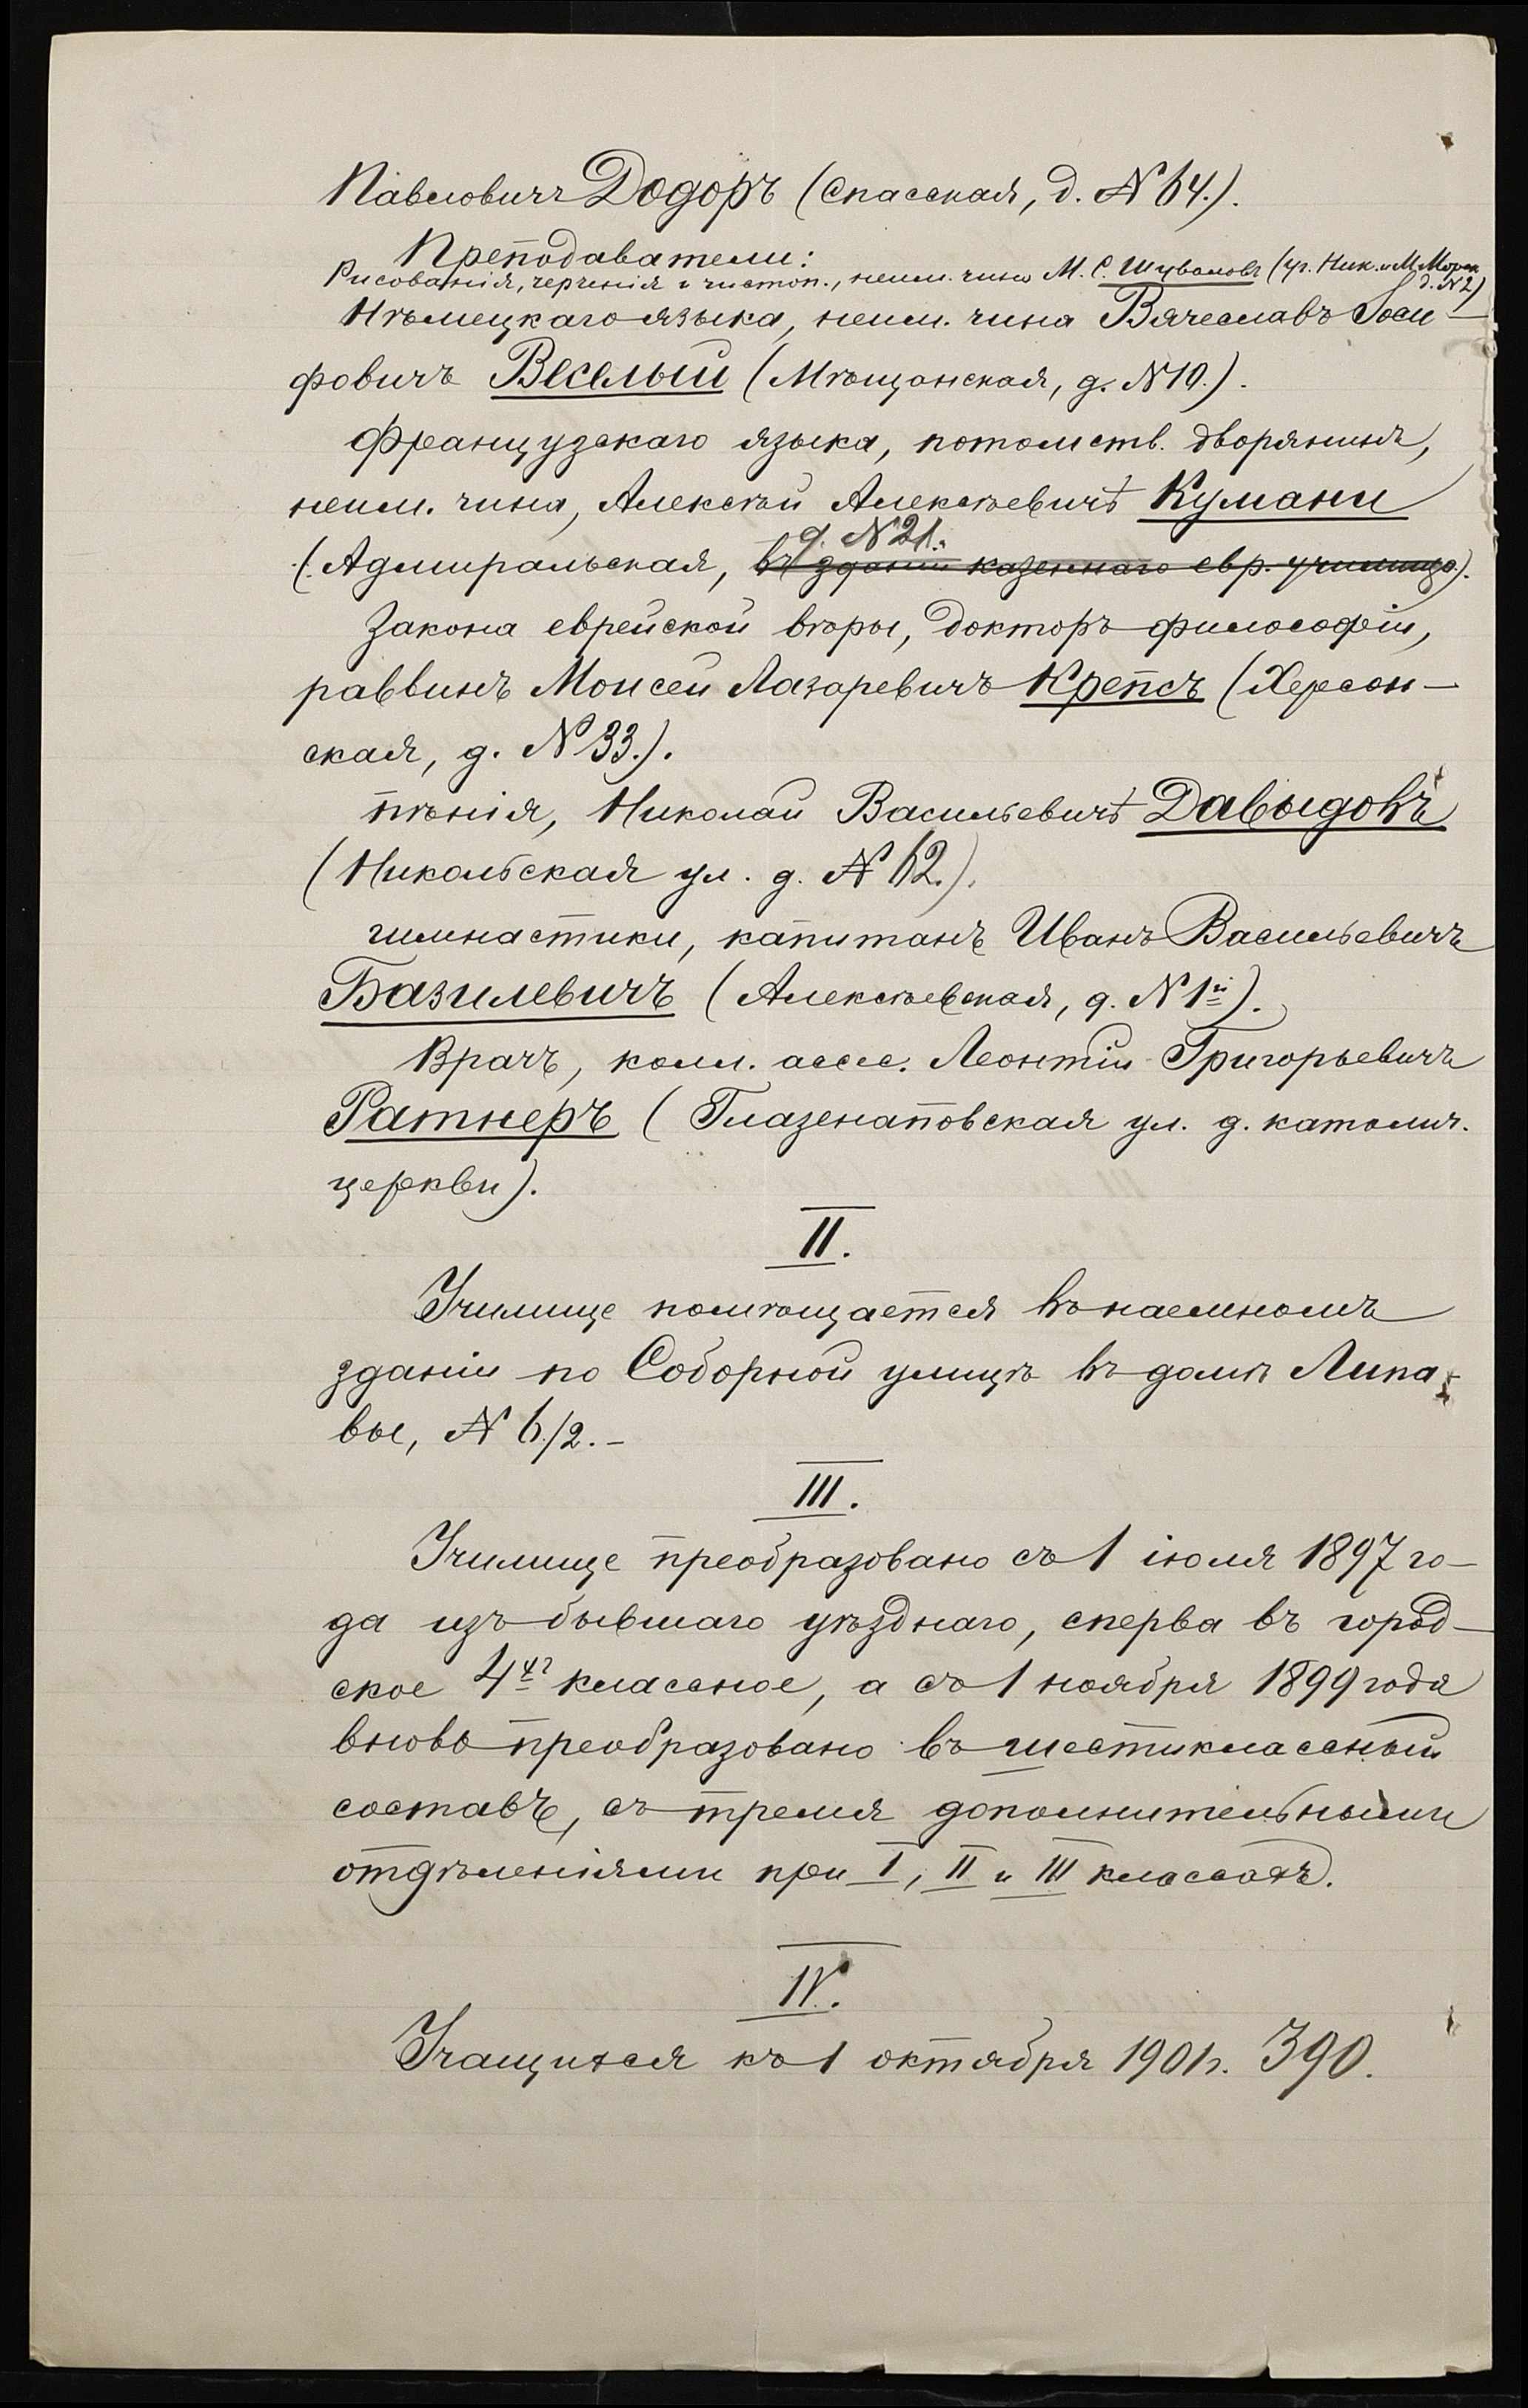 Павловичъ Додоръ (Спасская, д. № 64.).
Преподаватели:
Рисованія, черченія и чистоп., неим. чина М. С. Шуваловъ (уг. Ник. и М. Морск. д. № 2)
Нѣмецкаго языка, неим. чина Вячеславъ Іоси-
фовичъ Веселый (Мѣщанская, д. № 10.).
Французскаго языка, потомств. дворянинъ,
неим. чина, Алексѣй Алексѣевичъ Кумани
д. № 21.
(Адмиральская, въ зданіи казеннаго евр. училища).
Закона еврейской вѣры, докторъ философіи,
раввинъ Моисей Лазаревичъ Крепсъ (Херсон-
ская, д. № 33.).
пѣнія, Николай Васильевичъ Давыдовъ
(Никольская ул. д. № 62.).
гимнастики, капитанъ Иванъ Васильевичъ
Базилевичъ (Алексѣевская, д. № 1й).
Врачъ, колл. ассес. Леонтій Григорьевичъ
Ратнеръ (Глазенаповская ул. д. католич.
церкви).
II.
Училище помѣщается въ наемномъ
зданіи по Соборной улицѣ въ домѣ Липа-
вы, № 6/2. -
III.
Училище преобразовано съ 1 іюля 1897 го-
да изъ бывшаго уѣзднаго, сперва въ город-
ское 4хъ классное, а съ 1 ноября 1899 года
вновь преобразовано въ шестиклассный
составъ, съ тремя дополнительными
отдѣленіями при I, II и III классахъ.
IV.
Учащихся къ 1 октября 1901 г. 390.